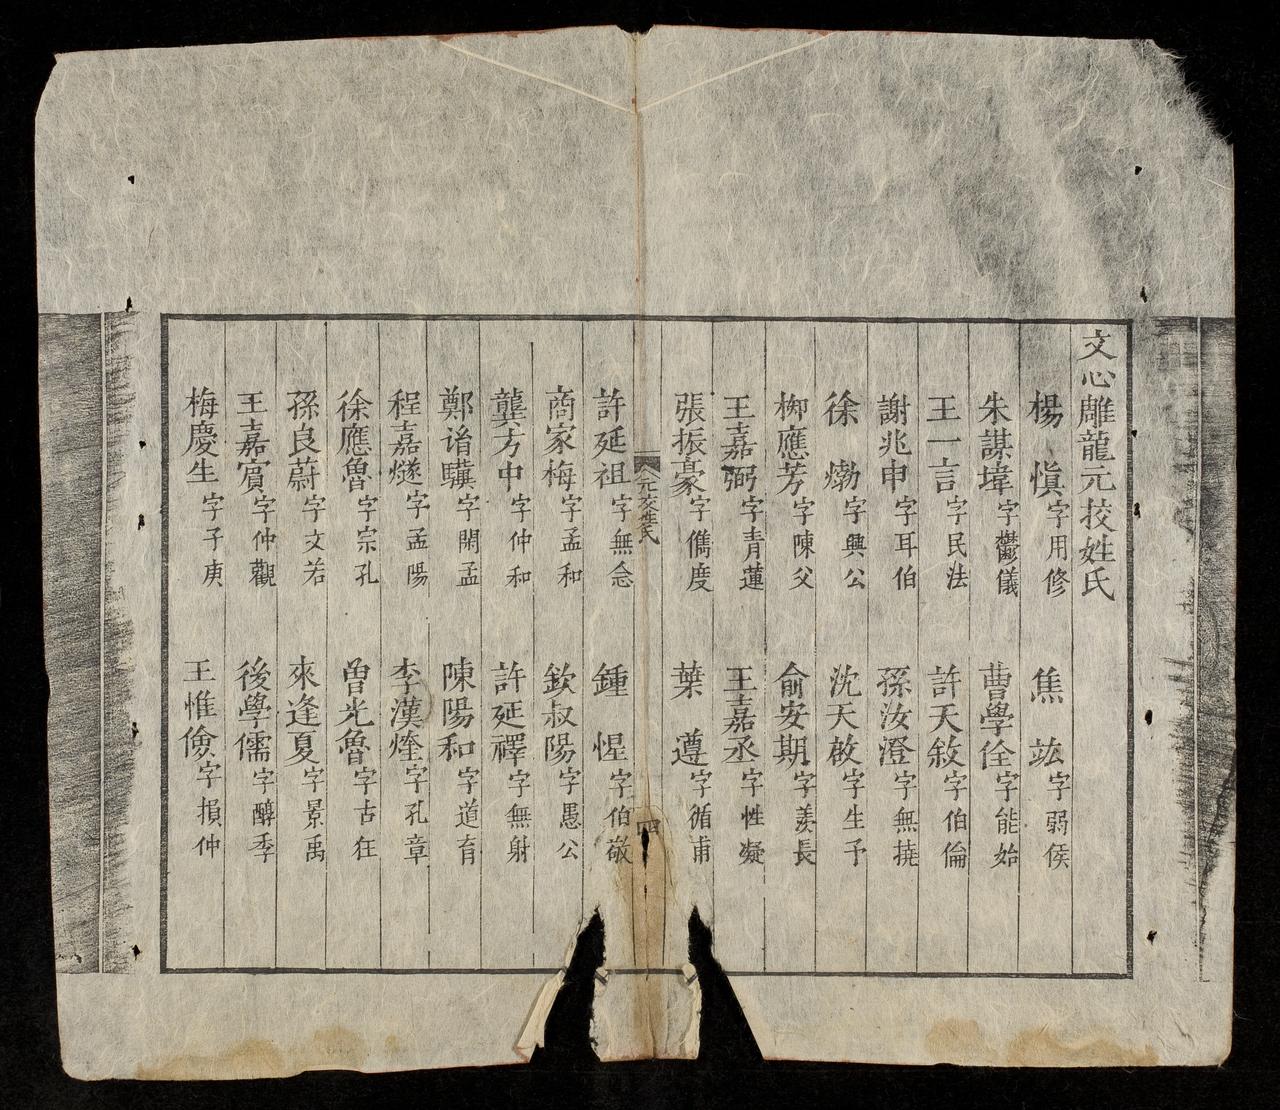 文心雕龍元挍姓氏
楊慎字用修 焦竑字弱侯
朱謀㙔字鬱儀 曹學佺字能始
王一言字民法 許天敘字伯倫
謝兆申字耳伯 孫汝澄字無撓
徐𤊹字興公 沈天啟字生予
柳應芳字陳父 俞安期字羨長
王嘉弼字青蓮 王嘉丞字性凝
張振豪字儁度 葉遵字循甫
元挍姓氏 四
許延祖字無念 鍾惺字伯敬
商家梅字孟和 欽叔陽字愚公
龔方中字仲和 許延禪字無射
鄭胤驥字閑孟 陳陽和字道育
程嘉燧字孟陽 李漢煃字孔章
徐應魯字宗孔 曾光魯字古狂
孫良蔚字文若 來逢夏字景禹
王嘉賓字仲觀 後學儒字醇季
梅慶生字子庾 王惟儉字損仲